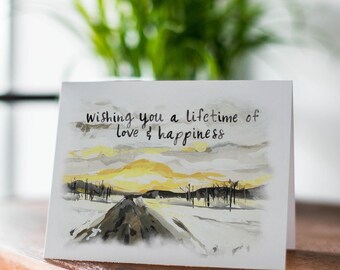 wishing you a lifetime of
love & happiness